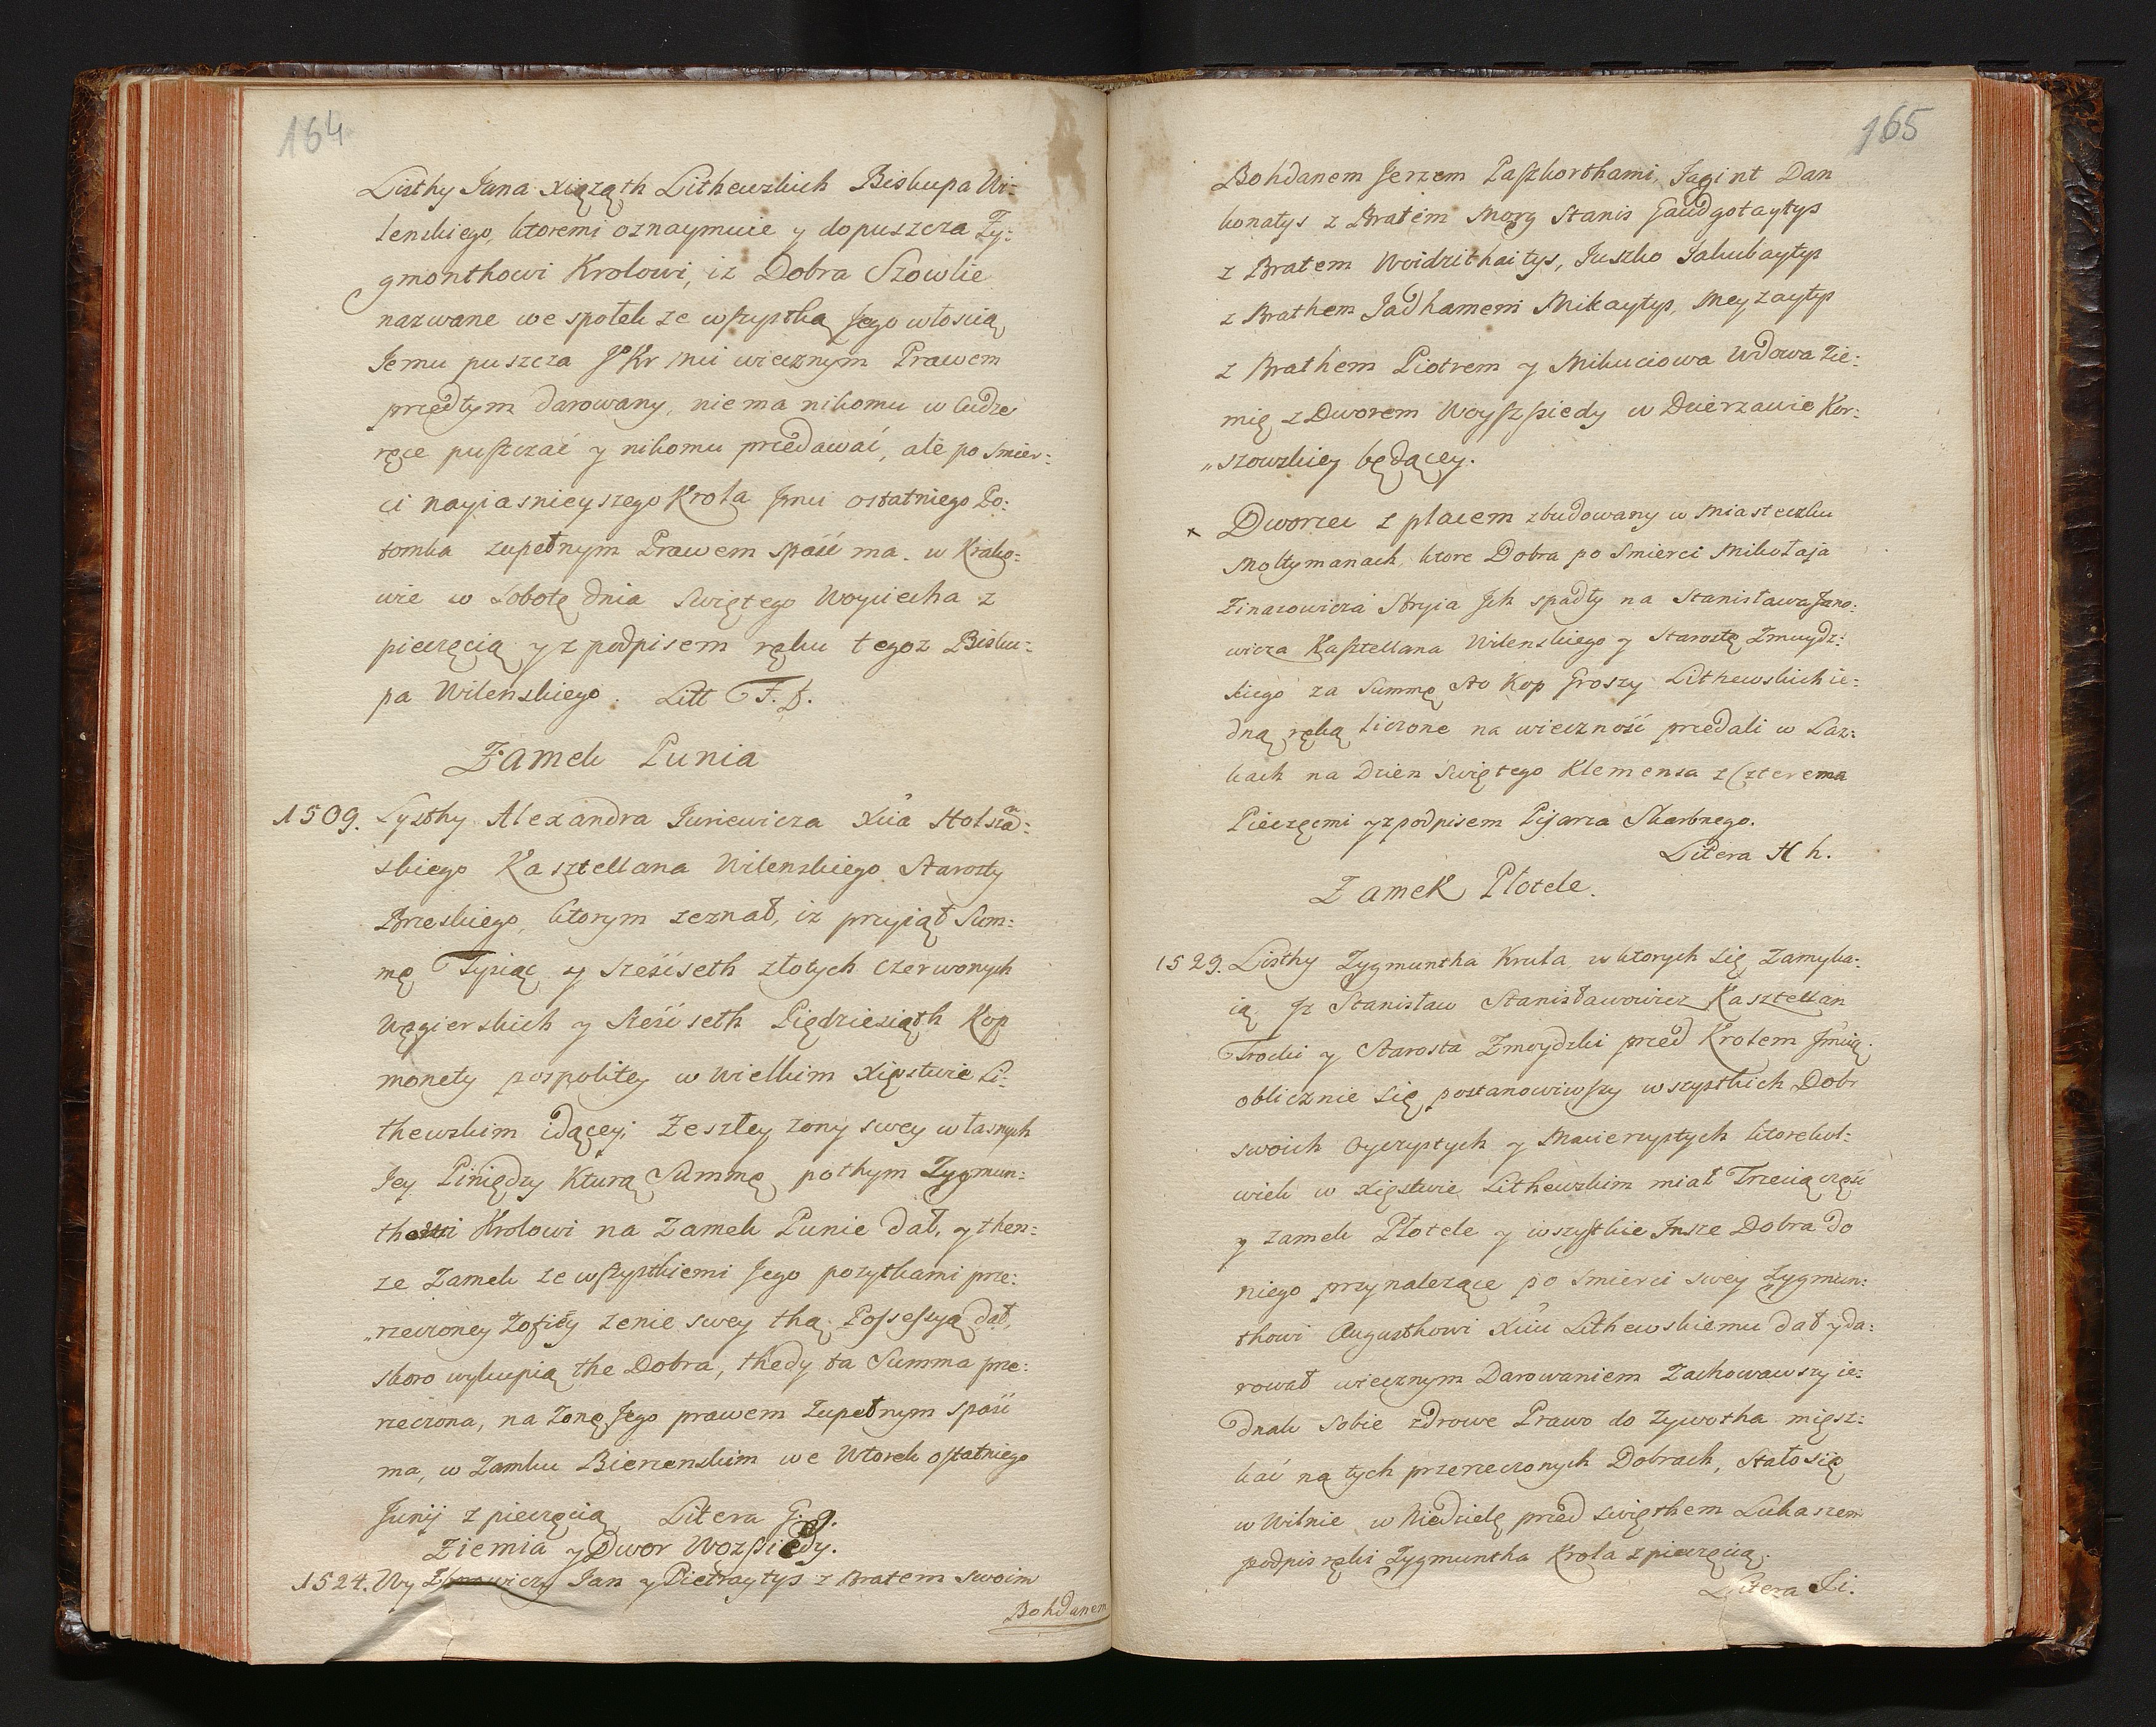 164
Listhy Jana Xiążąth Lithewskich Biskupa Wi-
lenskiego, ktoremi oznaymuie y dopuszcza Zy-
gmonthowi Krolowi, iz Dobra Szowlie
nazwane we społek ze wszystką Jego włoscią
Jemu puszcza Jo Kr Mci wiecznym Prawem
przedtym darowany, niema nikomu w ludze
ręce puszczać y nikomu przedawać, ale po smier-
ci nayiasnieyszego Krola Jmci ostatniego Po-
tomka zupełnym Prawem spaść ma. w Krako-
wie w Sobotę dnia Swiętego Woyciecha z
pieczęcią y z podpisem ręku tegoz Bisku-
pa Wilenskiego. Litt F. f.
Zamek Punia
1509. Lysthy Alexandra Juriewicza Xcia Holszan-
skiego Kasztellana Wilenskiego Starosty
Brzeskiego, ktorym zeznał, iz przyiął Sum-
mę Tysiąc y Sześćseth złotych czerwonych
Węgierskich y Sześćseth Piędziesiąth Kop
monety pospolitey w Wielkim Xięstwie Li-
thewskim idącey; Zeszłey zony swey własnych
Jey Piniędzy Kturą Summę pothym Zygmun-
thowi Krolowi na Zamek Punie dał, y then-
ze Zamek ze wszystkiemi Jego pozytkami prze-
„rzeczoney Zofiey zenie swey thą Possessyą dał,
skoro wykupią the Dobra, thedy ta Summa prze-
rzeczona, na Zonę Jego prawem Zupełnym spaść
ma, w Zamku Bierzenskim we Wtorek ostatniego
Junij z pieczęcią Litera G. g.
Ziemia y Dwor Wozsiedy.
1524. My Jan y Pietraytys z Bratem swoim
Bohdanem
165
Bohdanem Jerzem Paszkorthami, Jagint Dan
konatys z Bratem Morg Stanis Gaudgotaytys
z Bratem Woidzithaitys, Juszko Jakubaytys
z Brathem Jadhamem Mikaytys, Meyzaytys
z Brathem Piotrem y Mikuciowa Wdowa Zie-
mię z Dworem Woyszsiedy w Dzierzawie Kor-
„szowskiey będącey.
x Dworzec z placem zbudowany w Miasteczku
Moltymanach, ktore Dobra po Smierci Mikołaja
Zinazowicza Stryia Jch spadły na Stanisława Jano-
wicza Kasztellana Wilenskiego y Starostę Zmuydz-
kiego za Summę sto Kop Groszy Lithewskich ie-
dną ręką liczone na wieczność przedali w Laz-
kach na Dzien Swiętego Klemensa z Czterema
Pieczęcmi y z podpisem Pisarza Skarbnego.
Litera H h.
Zamek Plotele.
1529. Listhy Zygmuntha Krula w ktorych się Zamyka-
ią Jz Stanisław Stanisławowicz Kasztellan
Trocki y Starosta Zmoydzki przed Krolem Jmcią
oblicznie się postanowiwszy wszystkich Dobr
swoich Oyczystych y Macierzystych ktorekol-
wiek w Xięstwie Lithewskim miał Trzecią część
y zamek Płotele y wszystkie Jnsze Dobra do
niego przynalezące po smierci swey Zygmun-
thowi Augusthowi Xciu Lithewskiemu dał y da-
rował wiecznym Darowaniem Zachowawszy ie-
dnak Sobie zdrowe Prawo do Zywotha miesz-
kać na tych przerzeczonych Dobrach, Stało się
w Wilnie w Niedzielę przed Swięthem Lukaszem
podpis ręki Zygmuntha Krola z pieczęcią.
Litera Ii.